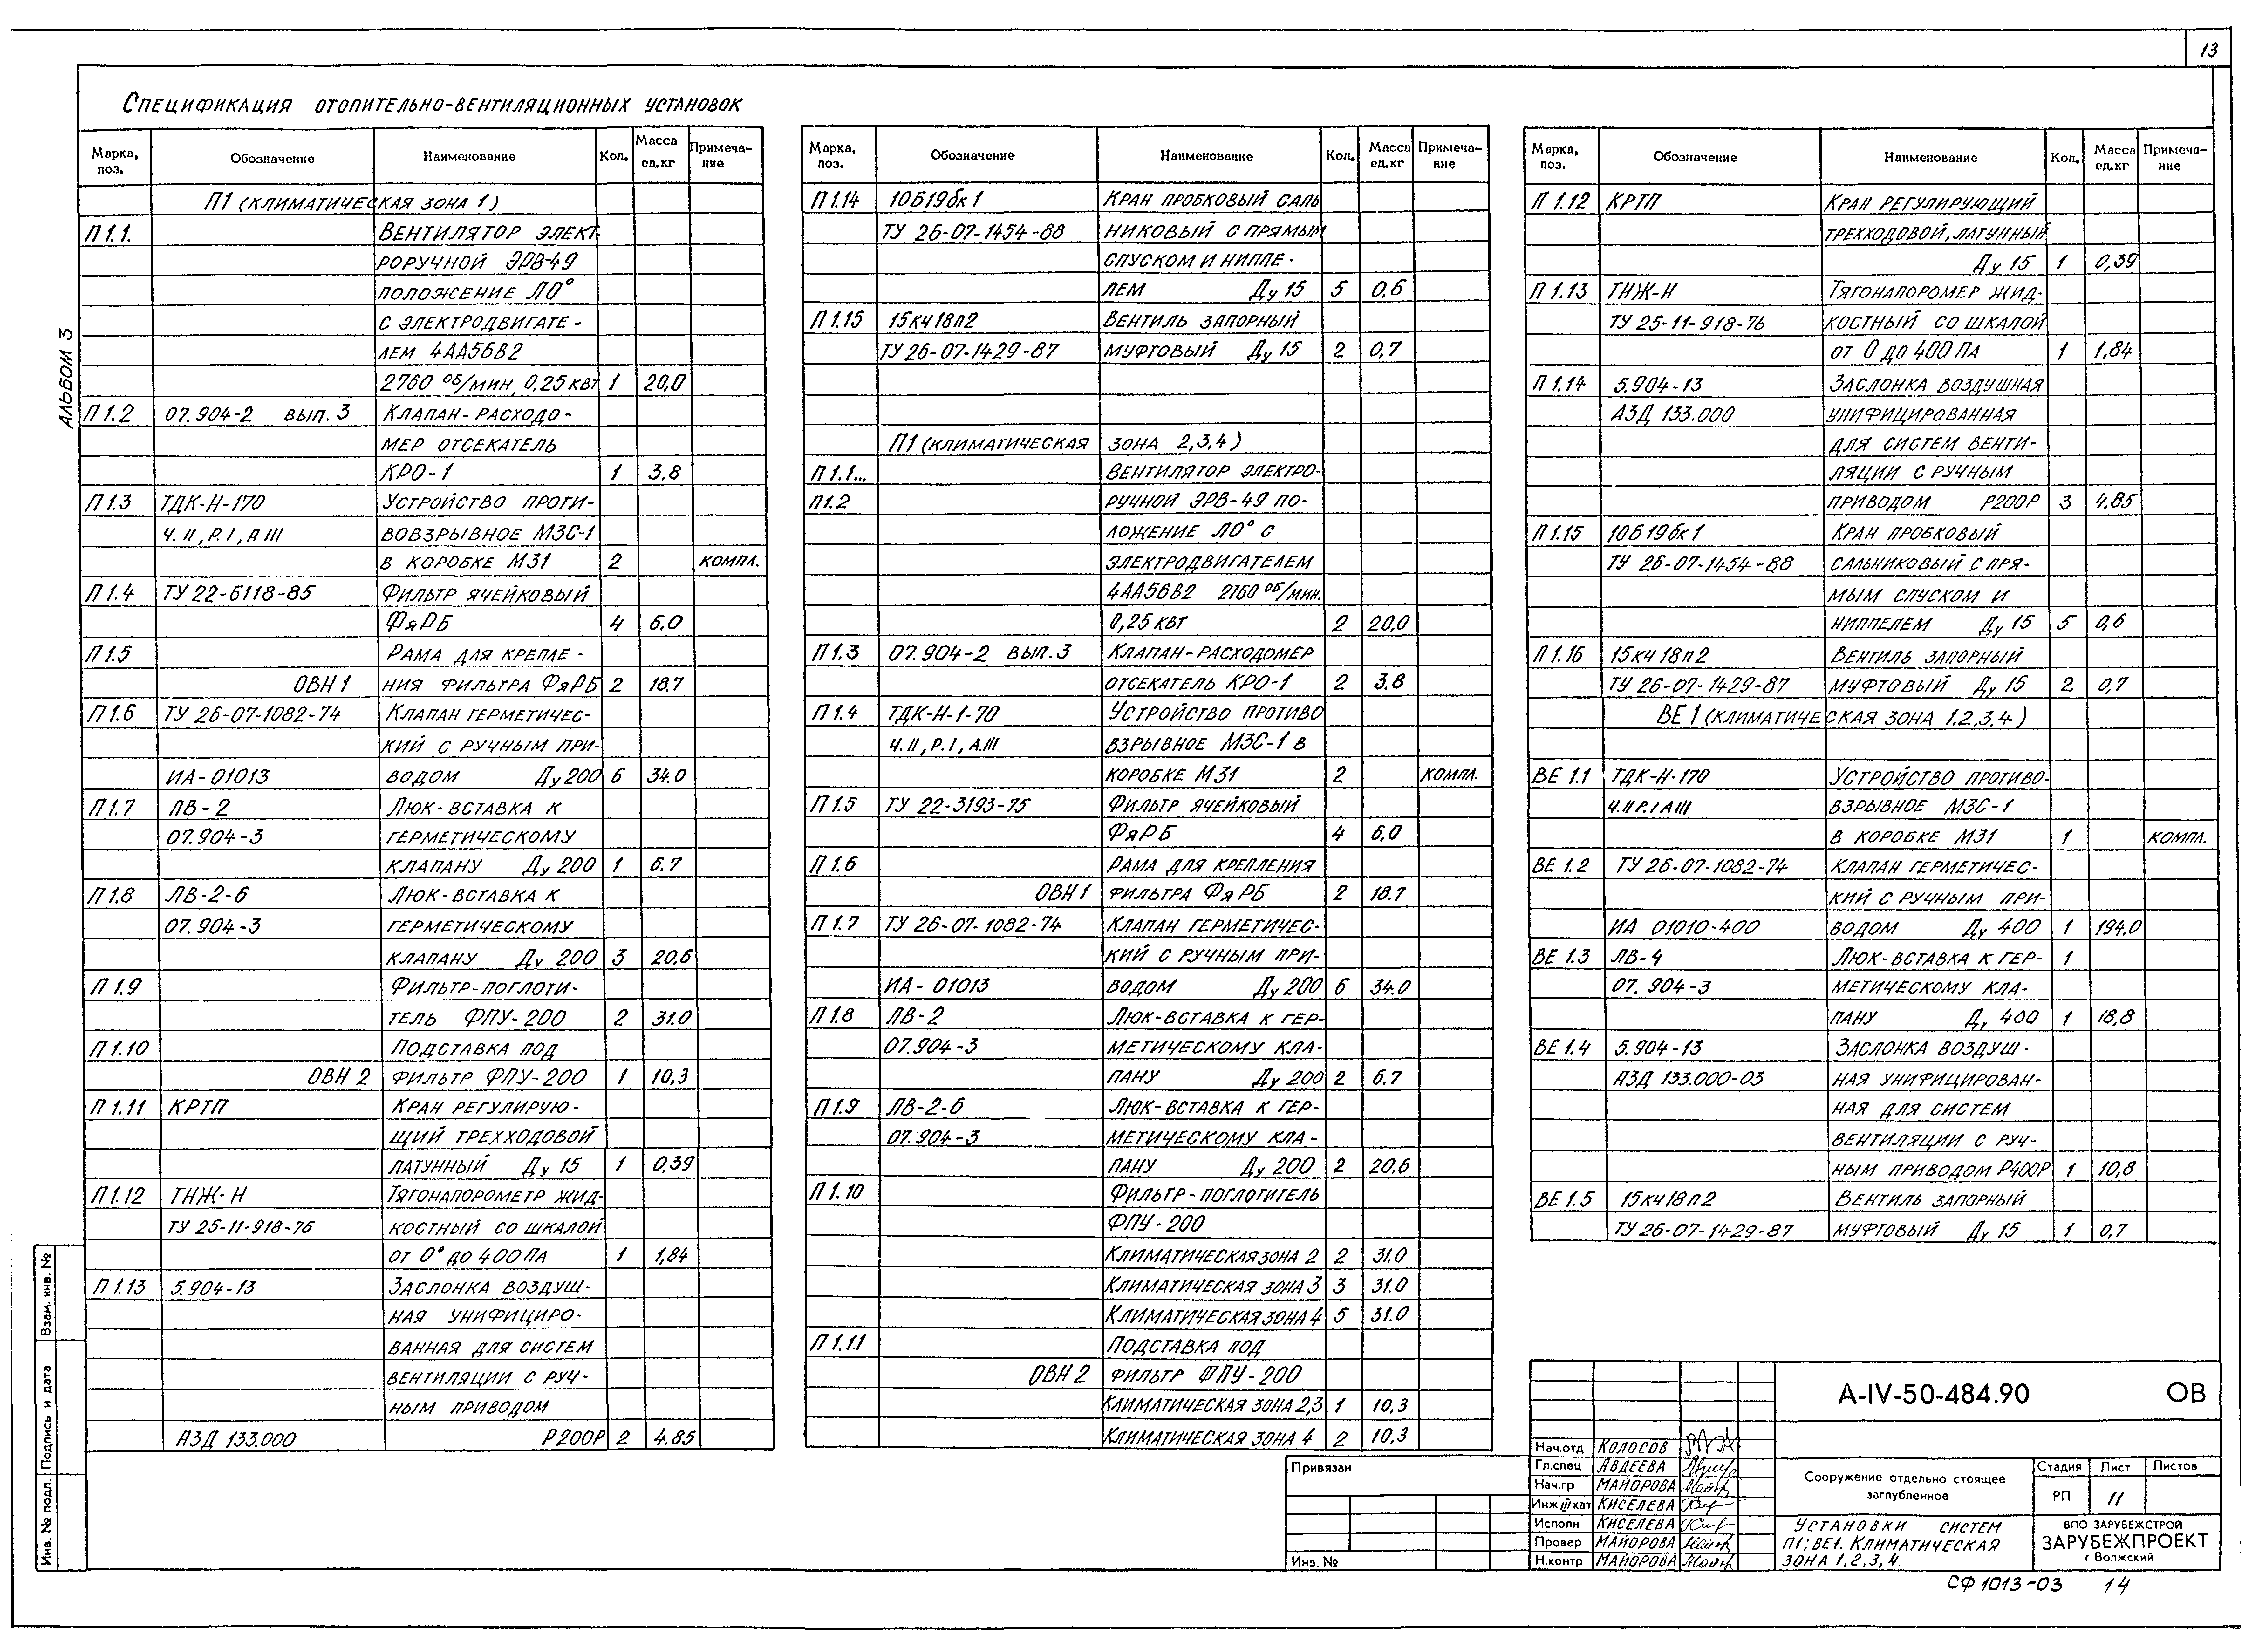 13
Спецификация отопительно-вентиляционных установок
Марка, поз. Обозначение Наименование Кол. Масса ед.кг Примеча-ние
П1 (климатическая зона 1)
П1.1. Вентилятор элект-
роручной ЭРВ-49
положение Л0°
с электродвигате-
лем 4АА56В2
2760 об/мин, 0,25 квт 1 20,0
П1.2 07.904-2 вып.3 Клапан-расходо-
мер отсекатель
КРО-1 1 3.8
П1.3 ТДК-Н-170 Устройство проти-
Ч.II, Р.I, А III вовзрывное МЗС-1
в коробке М31 2 компл.
П1.4 ТУ 22-6118-85 Фильтр ячейковый
ФяРБ 4 6.0
П1.5 Рама для крепле-
ОВН1 ния фильтра ФяРБ 2 18.7
П1.6 ТУ 26-07-1082-74 Клапан герметичес-
кий с ручным при-
ИА-01013 водом Ду 200 6 34.0
П1.7 ЛВ-2 Люк-вставка к
07.904-3 герметическому
клапану Ду 200 1 6.7
П1.8 ЛВ-2-6 Люк-вставка к
07.904-3 герметическому
клапану Ду 200 3 20,6
П1.9 Фильтр-поглоти-
тель ФПУ-200 2 31.0
П1.10 Подставка под
ОВН 2 фильтр ФПУ-200 1 10,3
П1.11 КРТП Кран регулирую-
щий трехходовой
латунный Ду 15 1 0,39
П1.12 ТНЖ-Н Тягонапорометр жид-
ТУ 25-11-918-76 костный со шкалой
от 0° до 400 Па 1 1,84
П1.13 5.904-13 Заслонка воздуш-
ная унифициро-
ванная для систем
вентиляции с руч-
ным приводом
АЗД 133.000 Р200Р 2 4.85
Марка, поз. Обозначение Наименование Кол. Масса ед.кг Примеча-ние
П1.14 10Б19бк1 Кран пробковый саль
ТУ 26-07-1454-88 никовый с прямым
спуском и ниппе-
лем Ду 15 5 0,6
П1.15 15кч18п2 Вентиль запорный
ТУ 26-07-1429-87 муфтовый Ду 15 2 0,7
П1 (климатическая зона 2,3,4)
П1.1... Вентилятор электро-
П1.2 ручной ЭРВ-49 по-
ложение Л0° с
электродвигателем
4АА56В2 2760 об/мин.
0,25 квт 2 20,0
П1.3 07.904-2 вып.3 Клапан-расходомер
отсекатель КРО-1 2 3.8
П1.4 ТДК-Н-1-70 Устройство противо
Ч.II, Р.I, А.III взрывное МЗС-1 в
коробке М31 2 компл.
П1.5 ТУ 22-3193-75 Фильтр ячейковый
ФяРБ 4 6.0
П1.6 Рама для крепления
ОВН1 фильтра ФяРБ 2 18.7
П1.7 ТУ 26-07-1082-74 Клапан герметичес-
кий с ручным при-
ИА-01013 водом Ду 200 6 34.0
П1.8 ЛВ-2 Люк-вставка к гер-
07.904-3 метическому кла-
пану Ду 200 2 6.7
П1.9 ЛВ-2-6 Люк-вставка к гер-
07.904-3 метическому кла-
пану Ду 200 2 20.6
П1.10 Фильтр-поглотитель
ФПУ-200
Климатическая зона 2 2 31.0
Климатическая зона 3 3 31.0
Климатическая зона 4 5 31.0
П1.11 Подставка под
ОВН 2 фильтр ФПУ-200
Климатическая зона 2,3 1 10,3
Климатическая зона 4 2 10,3
Марка, поз. Обозначение Наименование Кол. Масса ед.кг Примеча-ние
П1.12 КРТП Кран регулирующий
трехходовой, латунный
Ду 15 1 0,39
П1.13 ТНЖ-Н Тягонапоромер жид-
ТУ 25-11-918-76 костный со шкалой
от 0 до 400 Па 1 1,84
П1.14 5.904-13 Заслонка воздушная
АЗД 133.000 унифицированная
для систем венти-
ляции с ручным
приводом Р200Р 3 4.85
П1.15 10Б19бк1 Кран пробковый
ТУ 26-07-1454-88 сальниковый с пря-
мым спуском и
ниппелем Ду 15 5 0,6
П1.16 15кч18п2 Вентиль запорный
ТУ 26-07-1429-87 муфтовый Ду 15 2 0,7
ВЕ1 (климатическая зона 1.2,3,4)
ВЕ 1.1 ТДК-Н-170 Устройство противо-
Ч.II Р.I А III взрывное МЗС-1
в коробке М31 1 компл.
ВЕ 1.2 ТУ 26-07-1082-74 Клапан герметичес-
кий с ручным при-
ИА 01010-400 водом Ду 400 1 194.0
ВЕ 1.3 ЛВ-4 Люк-вставка к гер- 1
07.904-3 метическому кла-
пану Ду 400 1 18,8
ВЕ 1.4 5.904-13 Заслонка воздуш-
АЗД 133.000-03 ная унифицирован-
ная для систем
вентиляции с руч-
ным приводом Р400Р 1 10,8
ВЕ 1.5 15кч18п2 Вентиль запорный
ТУ 26-07-1429-87 муфтовый Ду 15 1 0,7
Альбом 3
Взам. инв. №
Подпись и дата
Инв. № подл.
Привязан
Инв. №
А-IV-50-484.90 ОВ
Нач.отд Колосов
Гл.спец Авдеева
Нач.гр Майорова
Инж III кат Киселева
Исполн Киселева
Провер Майорова
Н.контр Майорова
Сооружение отдельно стоящее
заглубленное
Стадия Лист Листов
РП 11
Установки систем
П1; ВЕ1. Климатическая
зона 1,2,3,4.
ВПО ЗАРУБЕЖСТРОЙ
ЗАРУБЕЖПРОЕКТ
г Волжский
СФ 1013-03 14